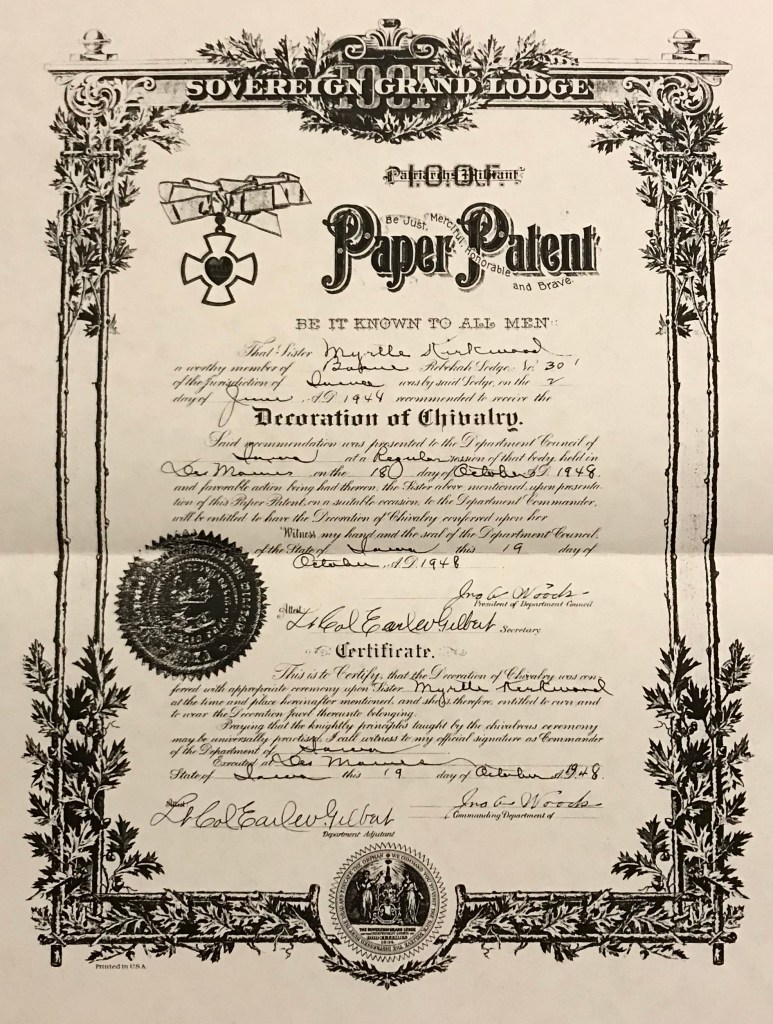 I.O.O.F.
SOVEREIGN GRAND LODGE
I.O.O.F.
Patriarchs Militant
Be Just, Merciful, Honorable
and Brave.
Paper Patent
BE IT KNOWN TO ALL MEN
That Sister Myrtle Kirkwood
a worthy member of Rebekah Lodge No. 301
of the Jurisdiction of Iowa was by said Lodge, on the 2
day of June A.D. 1948 recommended to receive the
Decoration of Chivalry.
Said recommendation was presented to the Department Council of
Iowa at a Regular session of that body held in
Des Moines on the 18 day of October A.D. 1948
and favorable action being had thereon, the Sister above mentioned, upon presenta-
tion of this Paper Patent, on a suitable occasion, to the Department Commander,
will be entitled to have the Decoration of Chivalry conferred upon her
Witness my hand and the seal of the Department Council,
of the State of Iowa this 19 day of
October A.D. 1948
Jno A Woods
President of Department Council
Attest
Lt Col Earle W Gilbert
Secretary
Certificate.
This is to Certify, that the Decoration of Chivalry was con-
ferred with appropriate ceremony upon Sister Myrtle Kirkwood
at the time and place hereinafter mentioned, and she is therefore, entitled to own and
to wear the Decoration Jewel thereunto belonging.
Praying that the knightly principles taught by the chivalrous ceremony
may be universally practised, I call witness to my official signature as Commander
of the Department of Iowa
Executed at Des Moines
State of Iowa this 19 day of October A.D. 1948.
Attest
Lt Col Earle W Gilbert
Department Adjutant
Jno A Woods
Commanding Department of
THE SOVEREIGN GRAND LODGE
Printed in U.S.A.